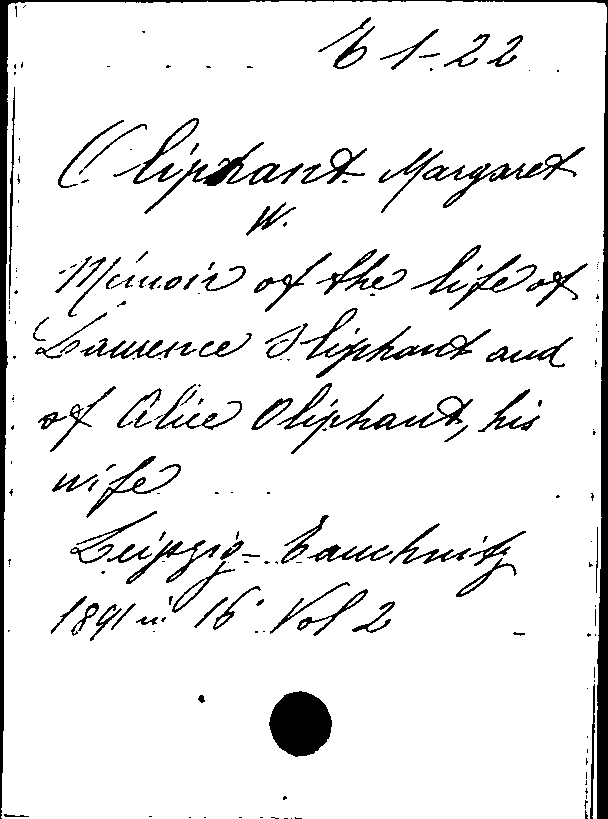 E 1-22
Oliphant Margaret
W.
Memoir of the life of
Laurence Oliphant and
of Alice Oliphant, his
wife
Leipzig - Tauchnitz
1891 in 16° Vol 2